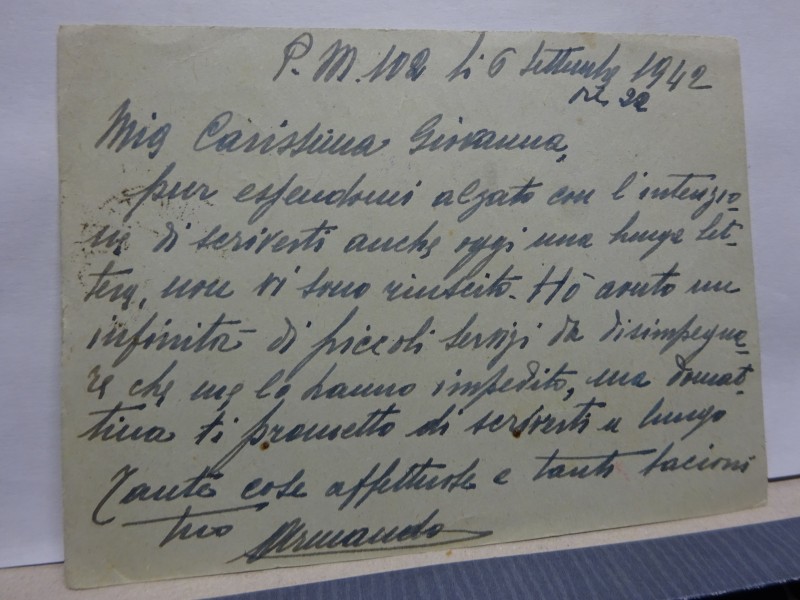 P. M. 102 li 6 Settembre 1942
ore 22
Mia Carissima Giovanna,
pur essendomi alzato con l'intenzio-
ne di scriverti anche oggi una lunga let-
tera, non vi sono riuscito. Hò avuto un
infinità di piccoli servizi da disimpegna-
re che me lo hanno impedito, ma domat-
tina ti prometto di scriverti a lungo
Tante cose affettuose e tanti bacioni
tuo Armando